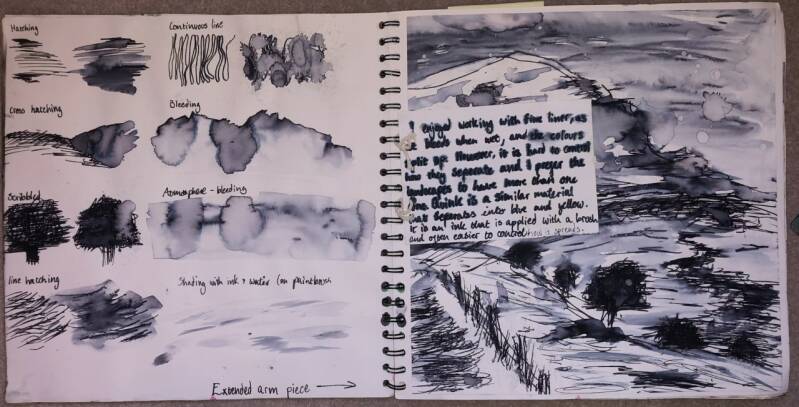 Hatching
Continuous line
Cross hatching
Bleeding
Scribbled
Atmosphere - bleeding
line hatching
Shading with ink + water (on paintbrush
Extended arm piece
I enjoyed working with fine liner, as
bleeds when wet, and the colours
split up. However, it is hard to control
how they separate and I prefer the
landscapes to have more than one
is a similar material
that separates into blue and yellow.
it is an ink that is applied with a brush
and often easier to control how is spreads.